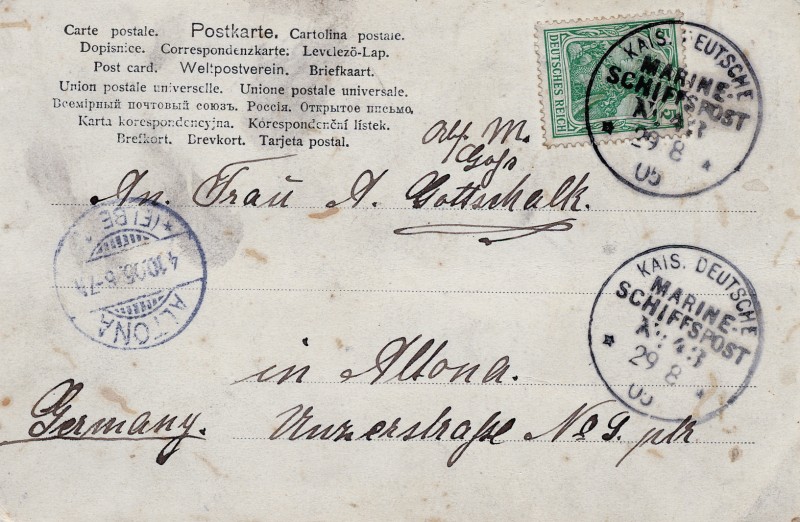 Carte postale. Postkarte. Cartolina postale.
Dopisnice. Correspondenzkarte. Levelezö-Lap.
Post card. Weltpostverein. Briefkaart.
Union postale universelle. Unione postale universale.
Всемірный почтовый союзъ. Россія. Открытое письмо.
Karta korespondencyjna. Kórespondenční lístek.
Brefkort. Brevkort. Tarjeta postal.
DEUTSCHES REICH
5
KAIS. DEUTSCHE
MARINE-
SCHIFFSPOST
No 43
29 8
05
M.
An. Frau A. Gottschalk.
ALTONA
(ELBE)
4.10.05.6-7
KAIS. DEUTSCHE
MARINE-
SCHIFFSPOST
No 43
29 8
05
in Altona.
Germany. Unzerstraße No 9.